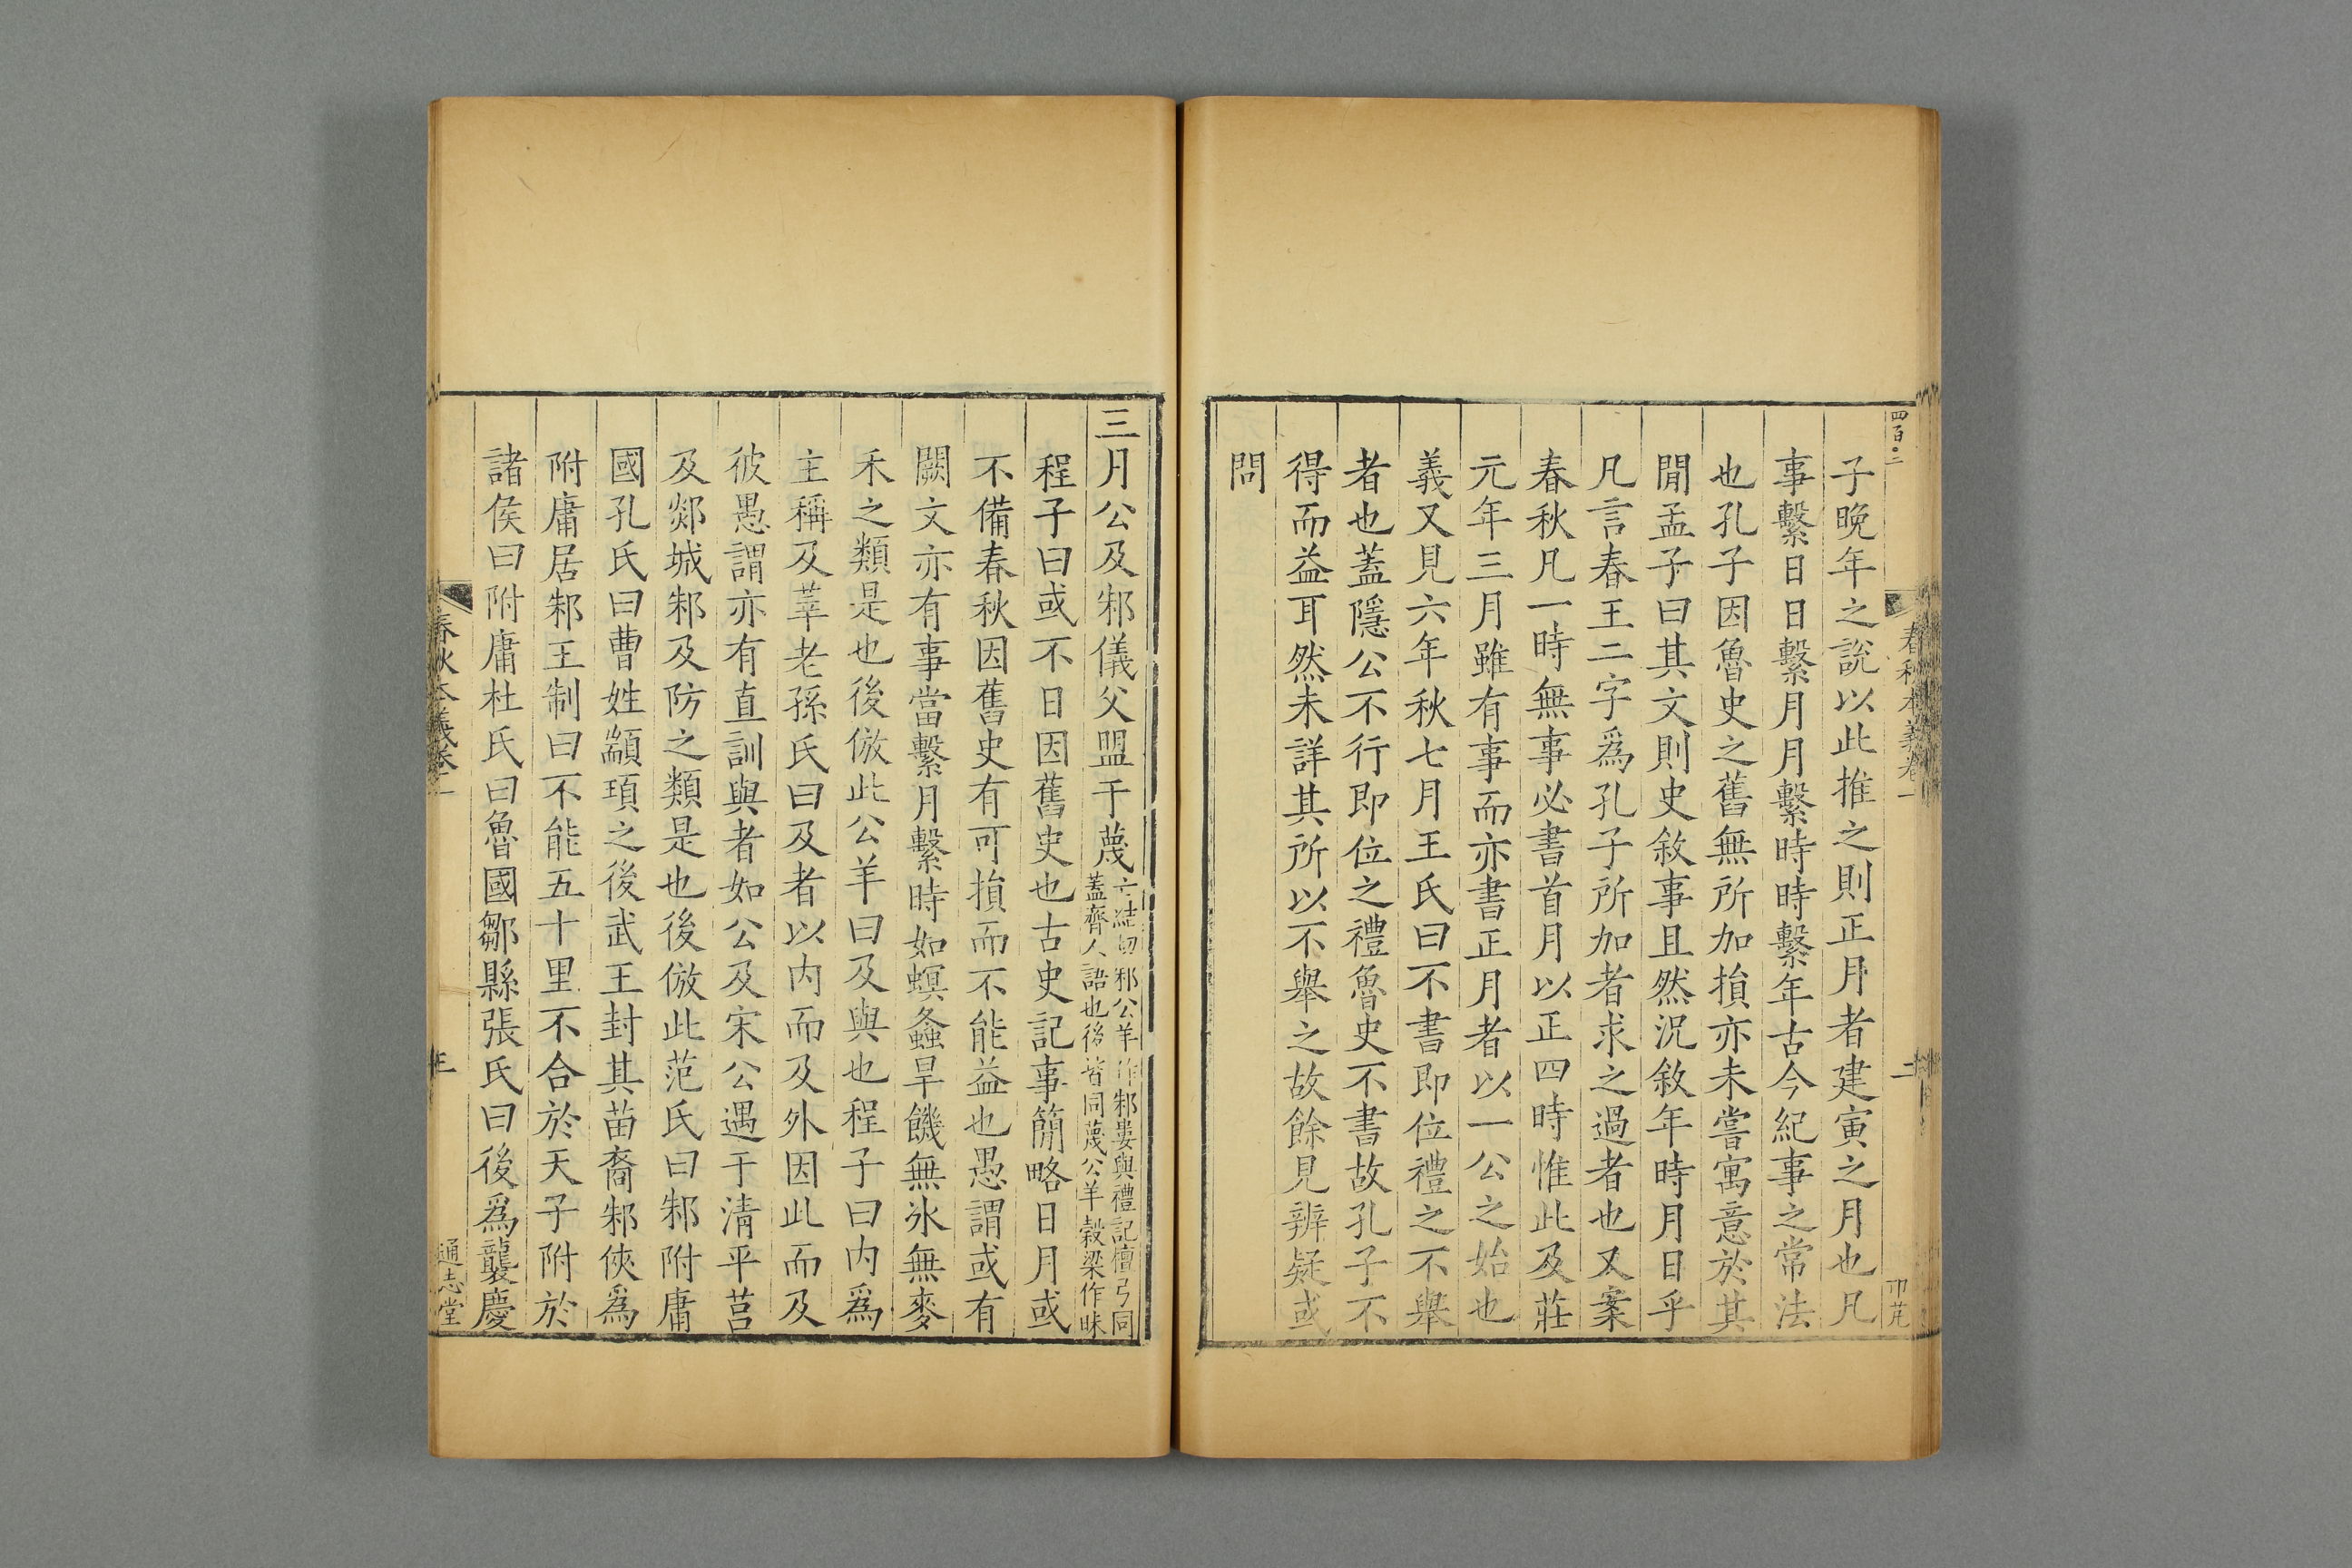 四百·二
春秋本義卷一
二
子晚年之說以此推之則正月者建寅之月也凡
事繫日日繫月月繫時時繫年古今紀事之常法
也孔子因魯史之舊無所加損亦未嘗寓意於其
閒孟子曰其文則史敘事且然況敘年時月日乎
凡言春王二字爲孔子所加者求之過者也又案
春秋凡一時無事必書首月以正四時惟此及莊
元年三月雖有事而亦書正月者以一公之始也
義又見六年秋七月王氏曰不書即位禮之不舉
者也蓋隱公不行即位之禮魯史不書故孔子不
得而益耳然未詳其所以不舉之故餘見辨疑或
問
三月公及邾儀父盟于蔑
亡結切邾公羊作邾婁與禮記檀弓同
蓋齊人語也後皆同蔑公羊穀梁作昧
程子曰或不日因舊史也古史記事簡略日月或
不備春秋因舊史有可損而不能益也愚謂或有
闕文亦有事當繫月繫時如螟螽旱饑無氷無麥
禾之類是也後倣此公羊曰及與也程子曰内爲
主稱及莘老孫氏曰及者以内而及外因此而及
彼愚謂亦有直訓與者如公及宋公遇于清平莒
及郯城邾及防之類是也後倣此范氏曰邾附庸
國孔氏曰曹姓顓頊之後武王封其苗裔邾俠爲
附庸居邾王制曰不能五十里不合於天子附於
諸侯曰附庸杜氏曰魯國鄒縣張氏曰後爲襲慶
春秋本義卷一
三
通志堂